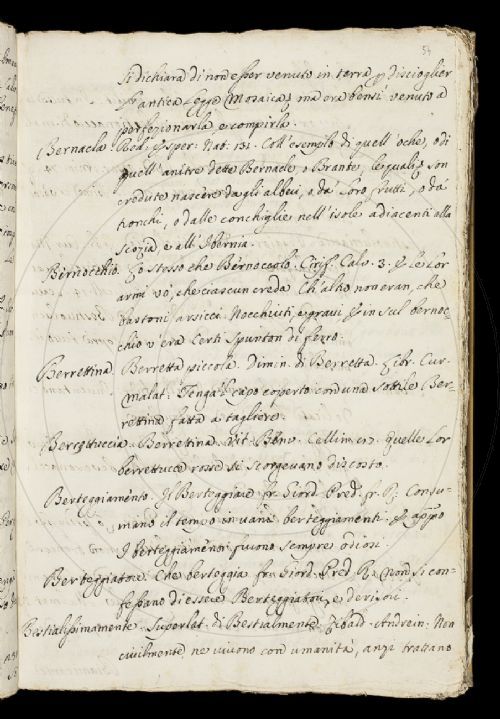 54
Si dichiara di non esser venuto in terra p discioglier
l'antica Legge Mosaica; ma era bensì venuto a
perfezionarla, e compirla.
Bernacla. Red. Esper. Nat. 131. Coll'esemplo di quell'oche, o di
quell'anitre dette Bernacle, o Brante, le quali son
credute nascere dagli alberi, o da' loro frutti, o da'
tronchi, o dalle conchiglie nell'isole adiacenti alla
Scozia, e all'Ibernia.
Bernocchio. Lo stesso che Bernoccolo. Ciriff. Calv. 3. E le lor
armi vo', che ciascun creda Ch'altro non eran, che
bastoni arsicci Nocchiuti, e gravi, E in sul bernoc-
chio v'era Certi spunton di ferro.
Berrettina. Berretta piccola. Dimin. di Berretta. Libr. Cur.
malat. Tenga 'l capo coperto con una sottile Ber-
rettina fatta a tagliere.
Berrettuccia. Berrettina. Vit. Benv. Cellin. Quelle lor
berrettucce rosse si scorgevano discosto.
Berteggiamento. Il Berteggiare. fr. Giord. Pred. fr. R. Consu-
mano il tempo in vani berteggiamenti. E appo
I berteggiamenti furono sempre odiosi.
Berteggiatore. Che berteggia. fra Giord. Pred. R. Non si con-
fessano di essere Berteggiatori, e derisori.
Bestialissimamente. Superlat. di Bestialmente. Zibald. Andrein. Non
civilmente, ne vivono con umanità, anzi trattano